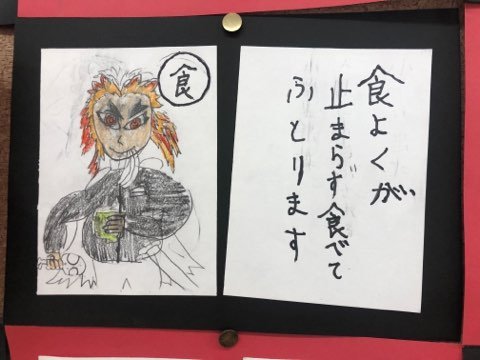 食
食よくが
止まらず食べて
ふとります